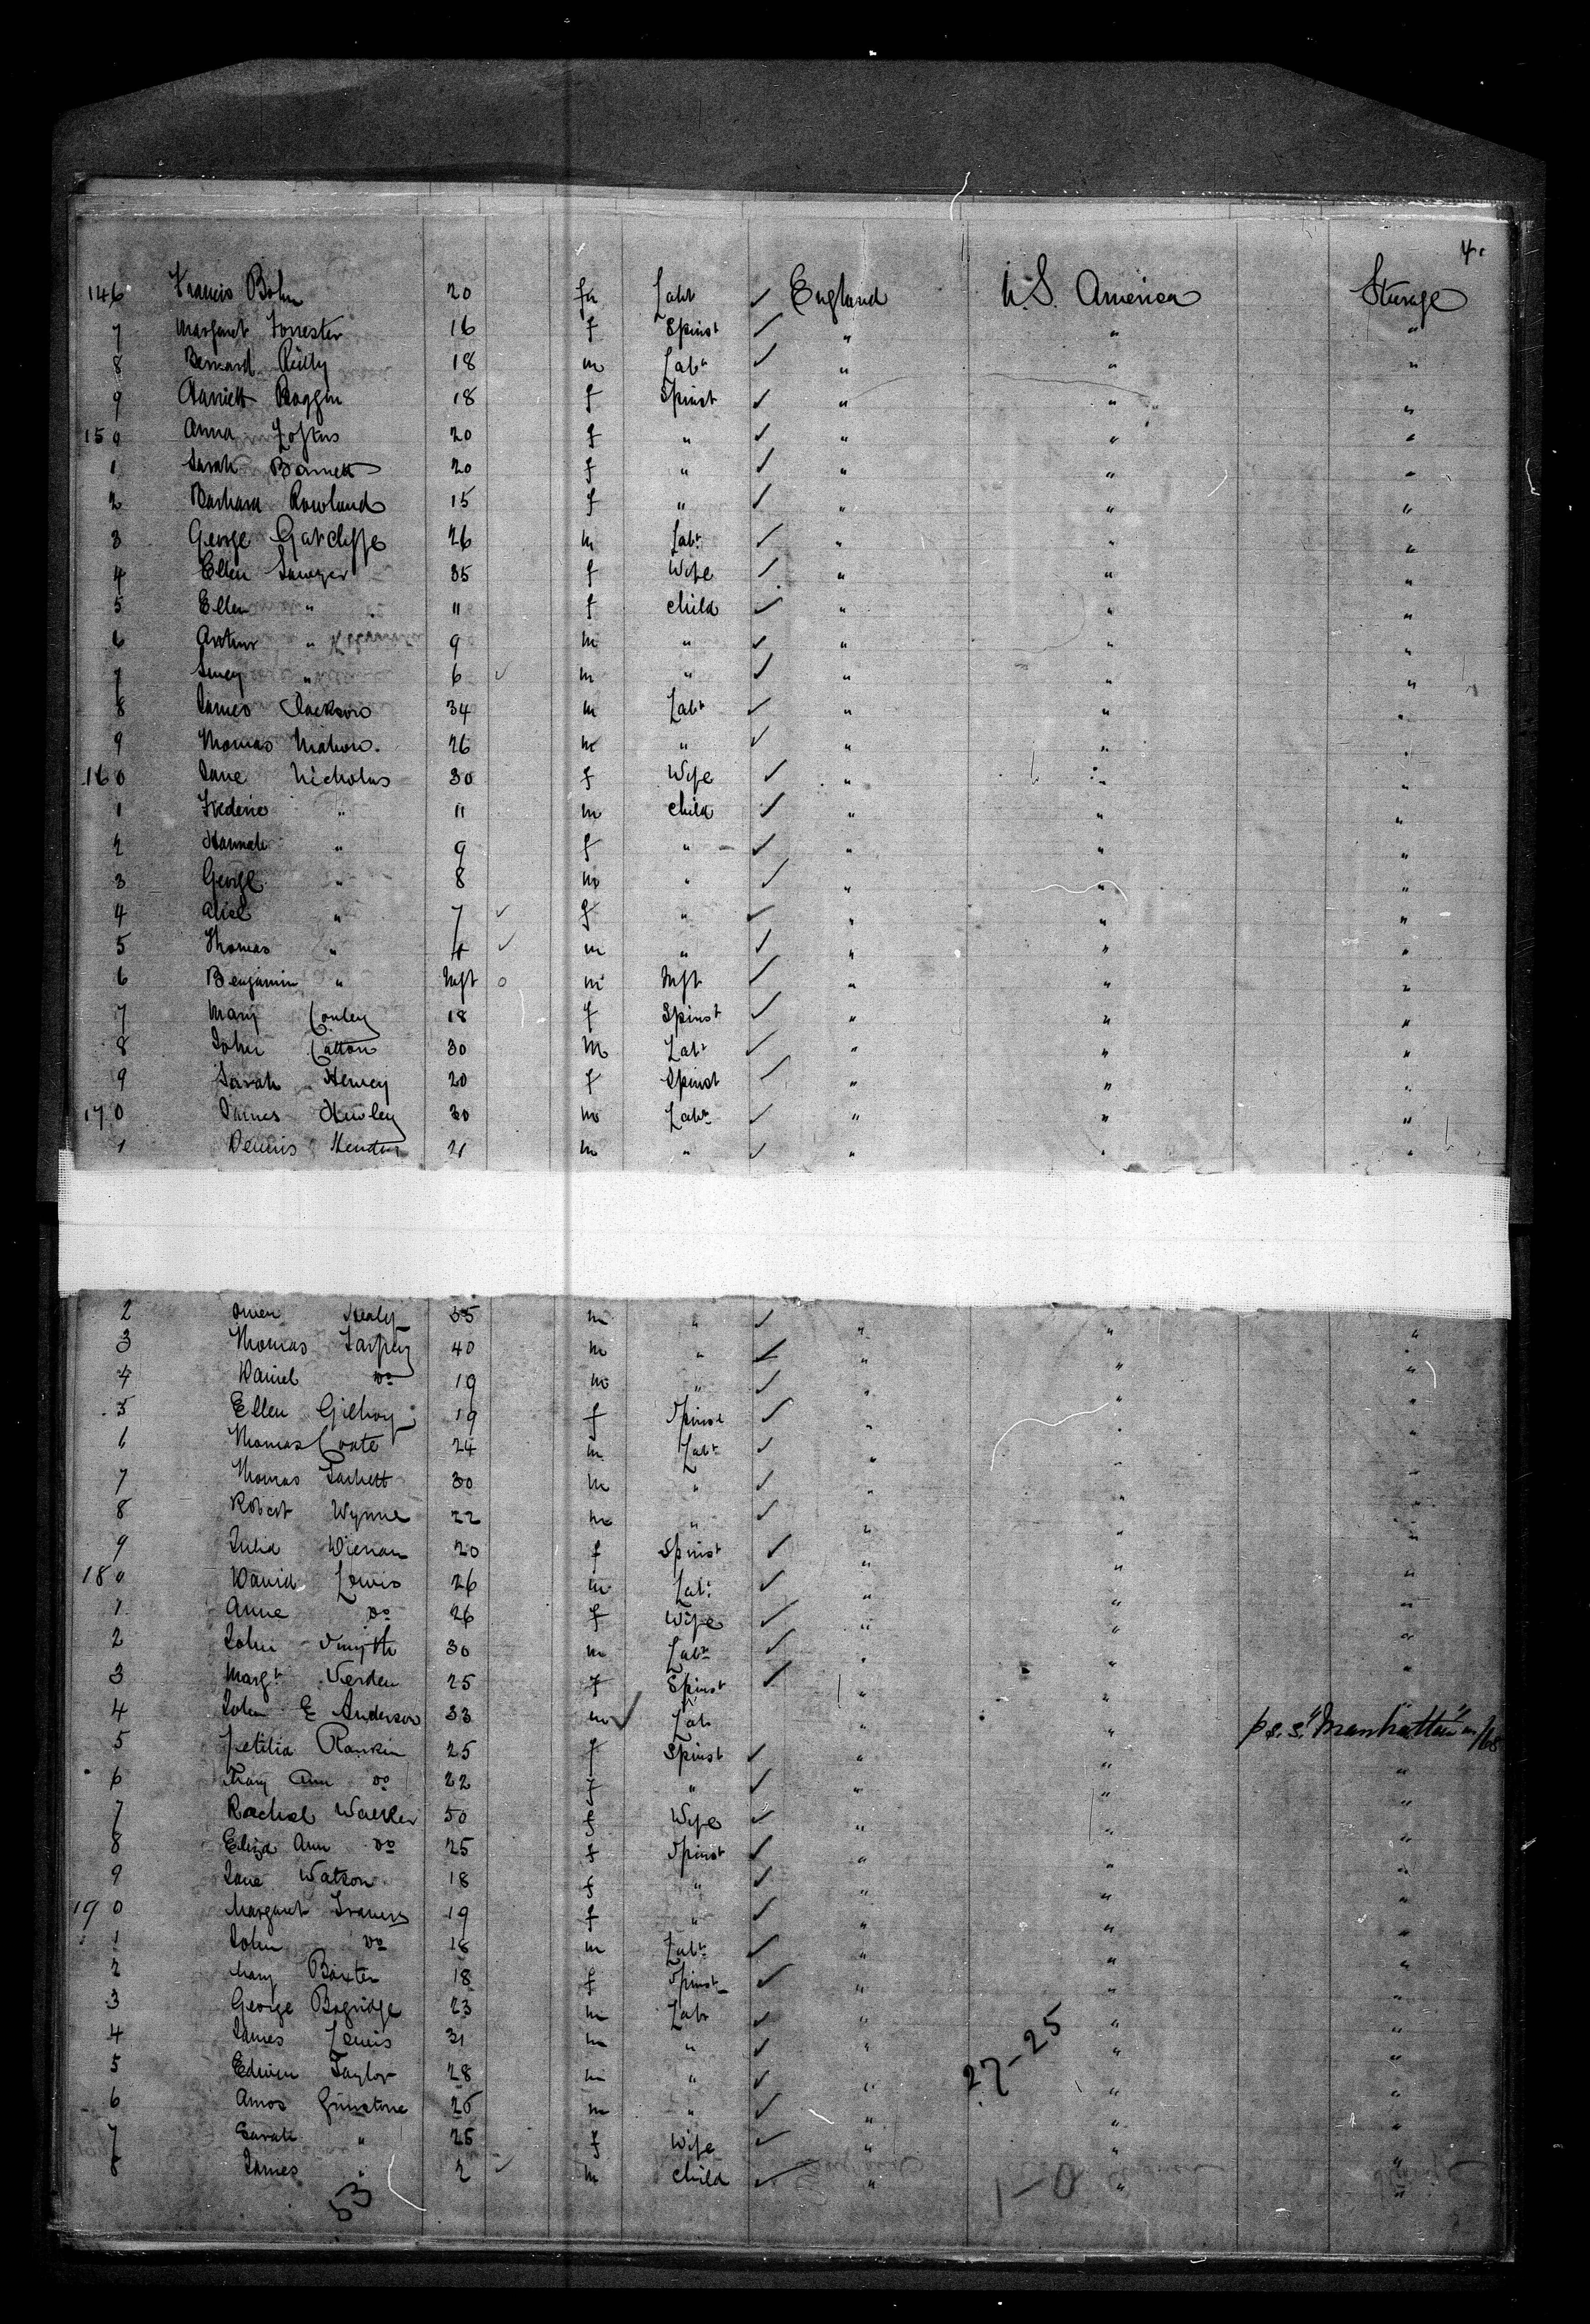 4.
146 Francis Bohn 20 Labr ✓ England U.S. America Steerage
7 Margaret Forrester 16 f Spinst ✓ " " "
8 Bernard Reilly 18 m Labr ✓ " " "
9 Harriett 18 f Spinst ✓ " " "
150 Anna Loftus 20 f " ✓ " " "
1 Sarah Barnett 20 f " ✓ " " "
2 Barbara Rowland 15 f " ✓ " " "
3 George 26 m Labr ✓ " " "
4 Ellen Sawyer 35 f Wife ✓ " " "
5 Ellen " 11 f Child ✓ " " "
6 Arthur " 9 m " ✓ " " "
7 " 6 ✓ m " ✓ " " "
8 James Jackson 34 m Labr ✓ " " "
9 Thomas Mahon. 26 m " ✓ " " "
160 Jane Nicholas 30 f Wife ✓ " " "
1 Frederic " 11 m Child ✓ " " "
2 Hannah " 9 f " ✓ " " "
3 George " 8 m " ✓ " " "
4 Alice " 7 ✓ f " ✓ " " "
5 Thomas " 4 ✓ m " ✓ " " "
6 Benjamin " Inft o m Inft ✓ " " "
7 Mary Conley 18 f Spinst ✓ " " "
8 John Catton 30 m Labr ✓ " " "
9 Sarah Hervey 20 f Spinst ✓ " " "
170 James Hurley 30 m Labr ✓ " " "
1 Dennis 21 m " ✓ " " "
2 Owen Healy 35 m " ✓ " " "
3 Thomas Tarpey 40 m " ✓ " " "
4 Daniel Do 19 m " ✓ " " "
5 Ellen Gilhoy 19 f Spinst ✓ " " "
6 Thomas Coate 24 m Labr ✓ " " "
7 Thomas 30 m " ✓ " " "
8 Robert Wynne 22 m " ✓ " " "
9 Julia 20 f Spinst ✓ " " "
180 David Lewis 26 m Labr ✓ " " "
1 Anne Do 26 f Wife ✓ " " "
2 John Smyth 30 m Labr ✓ " " "
3 Margt Verden 25 f Spinst ✓ " " "
4 John E Anderson 33 m ✓ Labr " " p s.s. "Manhattan" /68
5 Letitia Rankin 25 f Spinst ✓ " " "
6 Mary Ann Do 22 f " ✓ " " "
7 Rachel Walker 50 f Wife ✓ " " "
8 Eliza Ann Do 25 f Spinst ✓ " " "
9 Jane Watson 18 f " ✓ " " "
190 Margaret Travers 19 f " ✓ " " "
1 John Do 18 m Labr ✓ " " "
2 Mary Baxter 18 f Spinst ✓ " " "
3 George 23 m Labr ✓ " " "
4 James Lewis 31 m " ✓ " " "
5 Edwin Taylor 28 m " ✓ " " "
6 Amos Grimstone 26 m " ✓ " " "
7 Sarah " 25 f Wife ✓ " " "
8 James " 2 ✓ m Child ✓ " " "
27-25
53